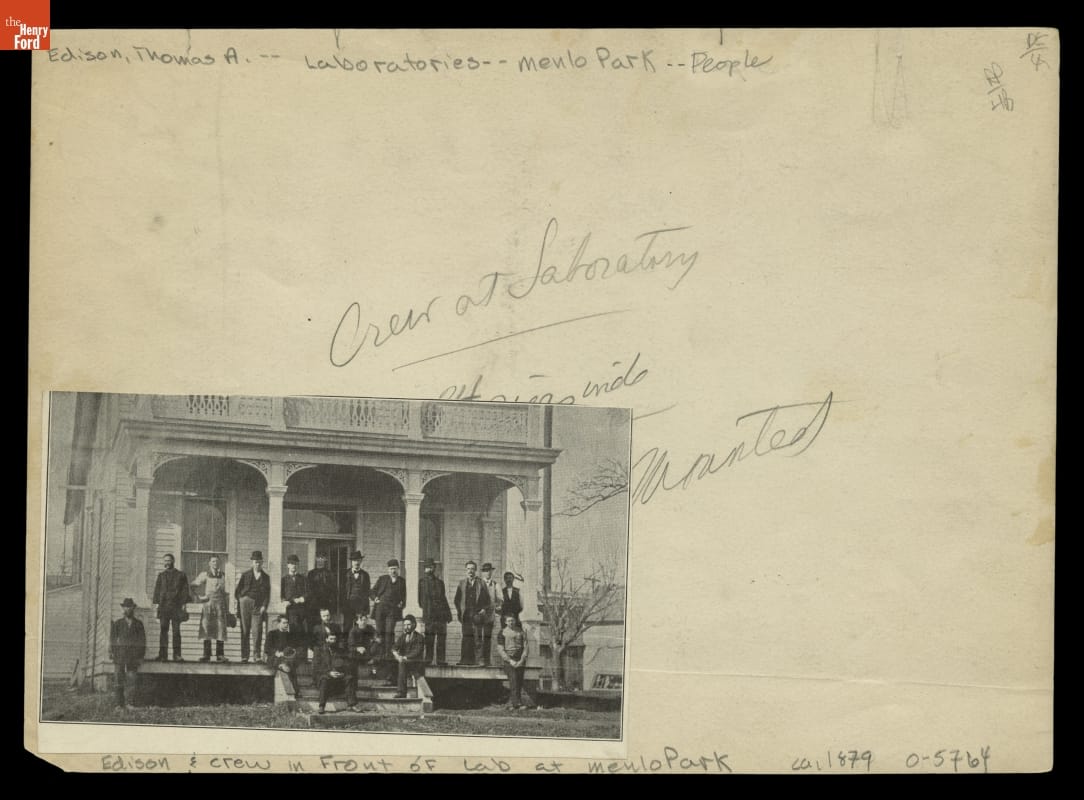 the
Henry
Ford
Edison, Thomas A. -- Laboratories -- Menlo Park -- People
Crew at Laboratory
Mounted
Edison & crew in Front of Lab at Menlo Park ca. 1879 0-5764